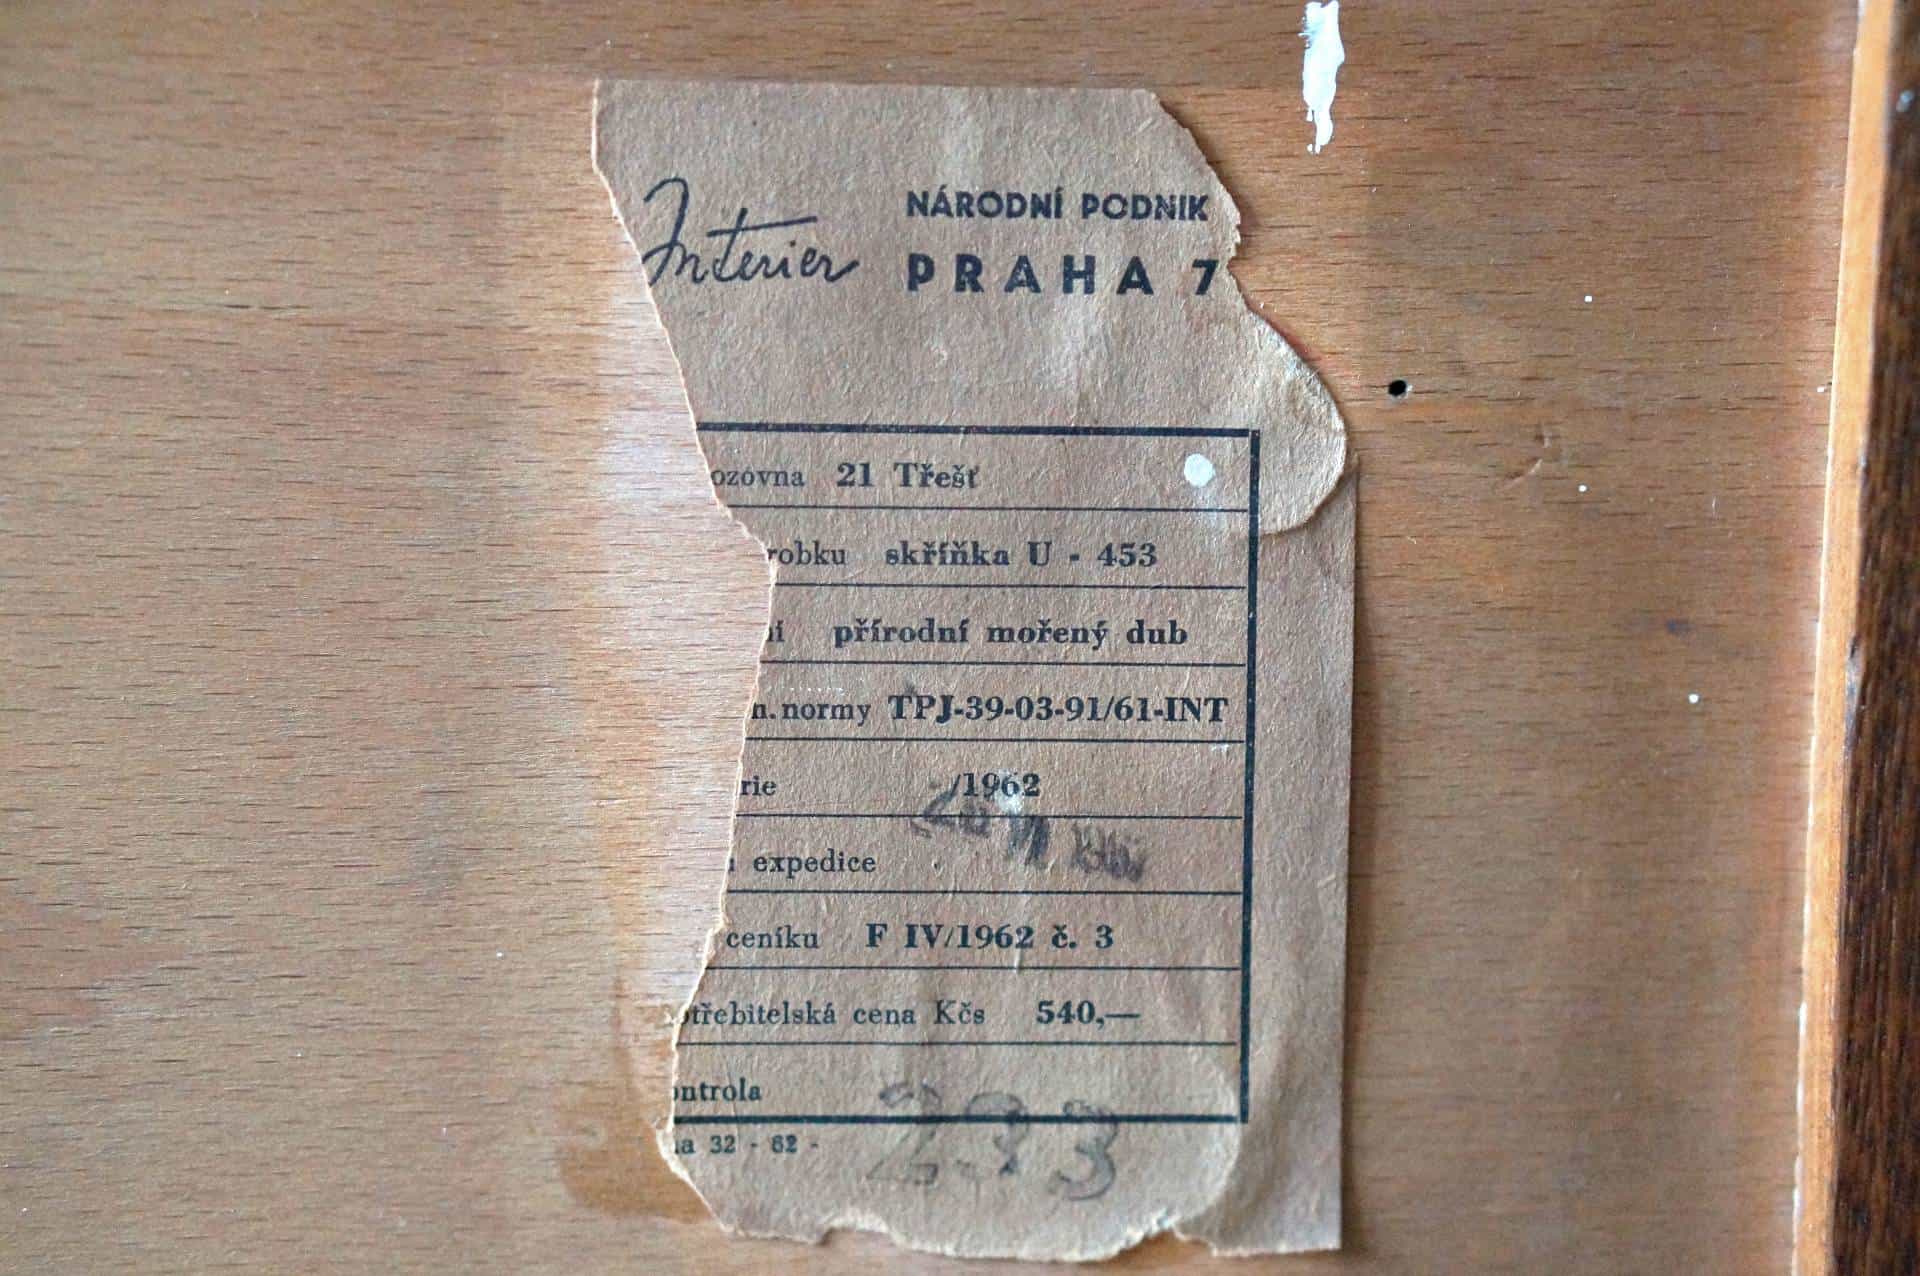 Interier
NÁRODNÍ PODNIK
PRAHA 7
ozovna 21 Třešť
robku skříňka U - 453
ní přírodní mořený dub
n. normy TPJ-39-03-91/61-INT
rie /1962
expedice
ceníku F IV/1962 č. 3
otřebitelská cena Kčs 540,—
ontrola
na 32 - 62 -
233